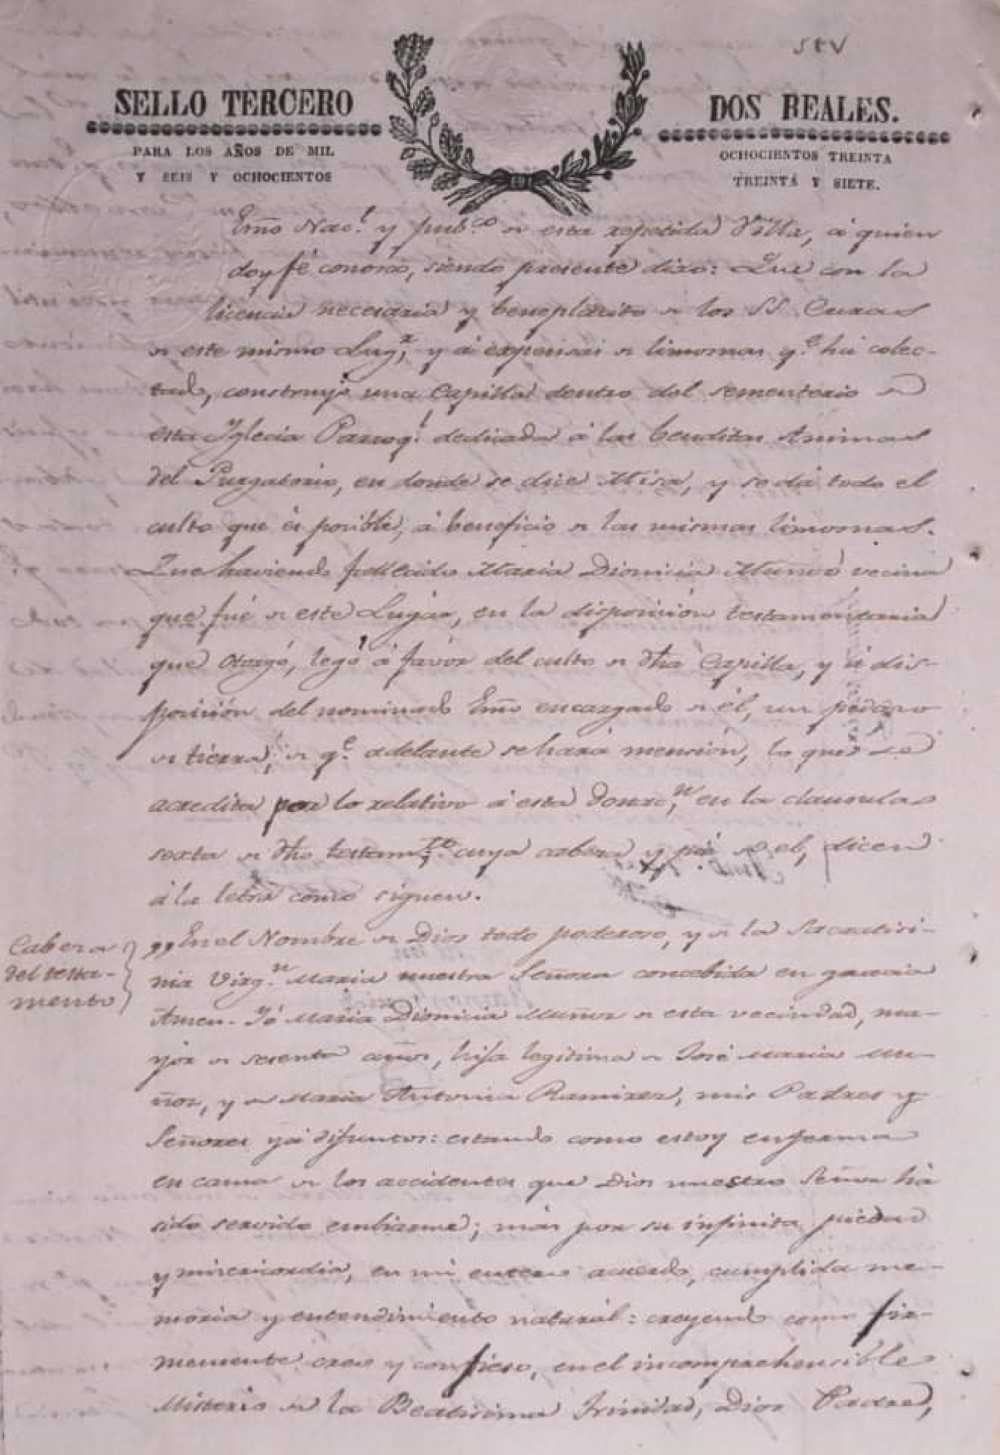 SELLO TERCERO
DOS REALES.
PARA LOS AÑOS DE MIL
Y SEIS Y OCHOCIENTOS
OCHOCIENTOS TREINTA
TREINTA Y SIETE.
Esño Nac.l y pub.co de esta repetida Villa, á quien
doy fé conosco, siendo presente dixo: Que con la
licencia necesaria y beneplácito de los SS. Curas
de este mismo Lug.r, y á expensas de limosnas q.e há colec-
tado, construyó una Capilla dentro del sementerio de
esta Iglecia Parroq.l dedicada á las benditas Animas
del Purgatorio, en donde se dice Misa, y se dá todo el
culto que és posible, á beneficio de las mismas limosnas.
Que haviendo fallecido Maria Dionicia Muños vecina
que fué de este Lugár, en la disposición testamentaria
que otorgó, legó á favór del culto de dha Capilla, y á dis-
posición del nominado Esño encargado de él, un pedaso
de tierra, de q.e adelante se hará mención, lo que se
acredita por lo relativo á esta donac.n en la clausula
sexta de dho testam.to cuya cabesa y pié de el, dicen
á la letra como siguen.
Cabesa
del testa-
mento
„En el Nombre de Dios todo poderoso, y de la Sacratisi-
ma Virg.n Maria nuestra Señora concebida en gracia
Amen. Yó Maria Dionicia Muñoz de esta vecindad, ma-
yór de sesenta años, hija legitima de José Maria Mu-
ñoz, y de Maria Antonia Ramirez, mis Padres y
Señores yá difuntos: estando como estoy enferma
en cama de los accidentes que Dios nuestro Señor há
sido servido embiarme; más por su infinita piedad
y misericordia, en mi entero acuerdo, cumplida me-
moria y entendimiento naturál: creyendo como fir-
memente creo y confieso, en el incomprehencible
Misterio de la Beatisima Trinidad, Dios Padre,